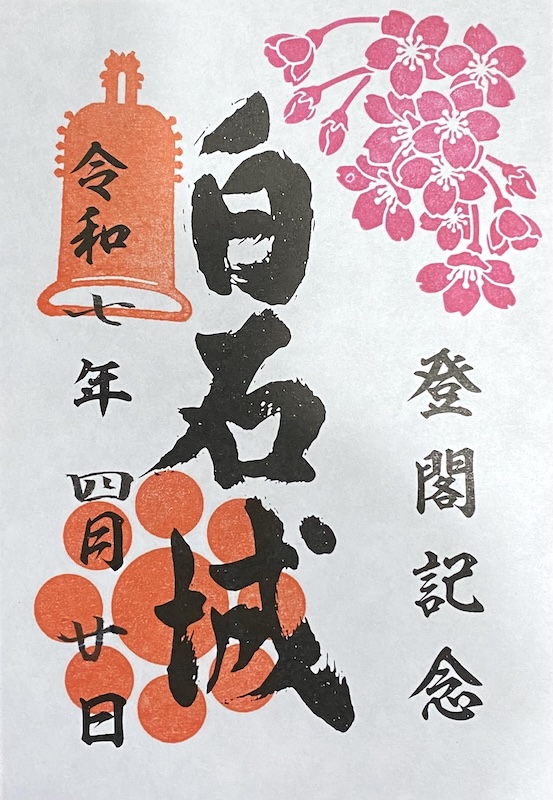 登閣記念
白石城
令和七年 四月廿日